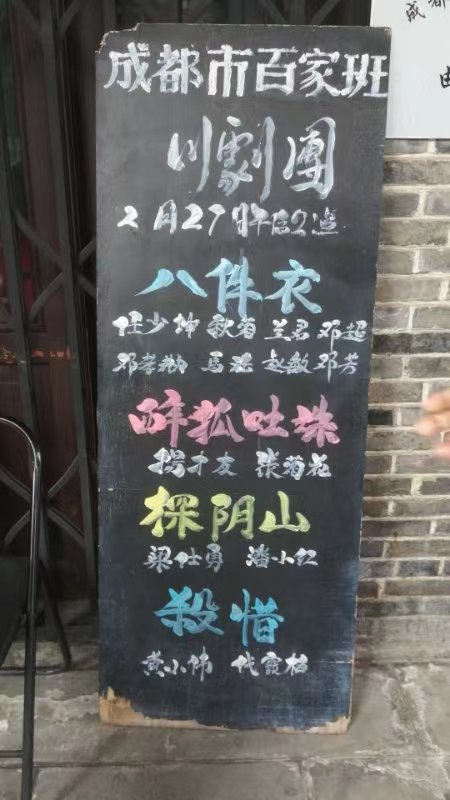 成都
由
成都市百家班
川劇團
2月27日午后2点
八件衣
任少坤 秋菊 兰君 邓超
邓孝勤 马 赵敏 邓芳
醉狐吐珠
杨才友 张菊花
探阴山
梁仕勇 潘小仁
殺惜
黄小伟 代霞